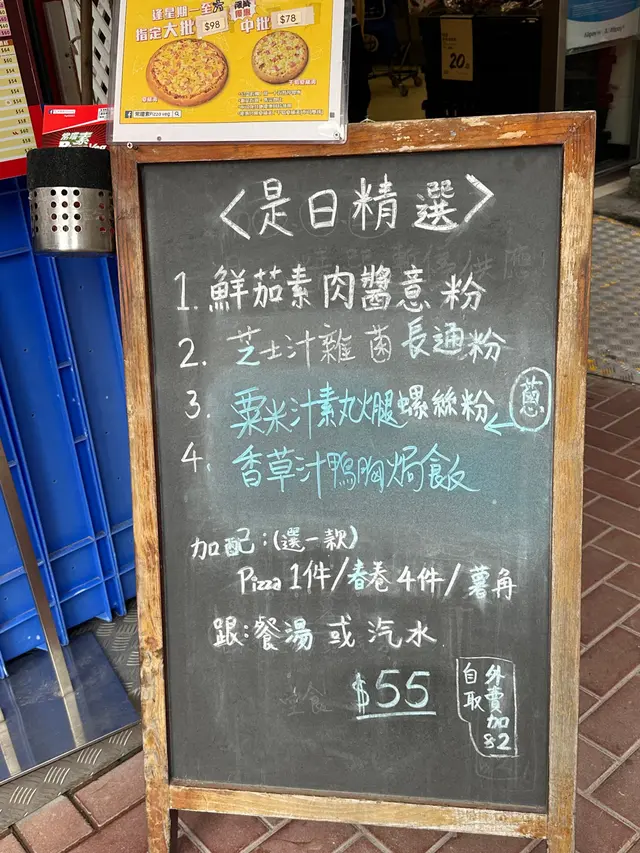 逢星期一至
指定大批 $98 中批 $78
常嚐素Pizza veg
20
〈是日精選〉
1. 鮮茄素肉醬意粉
2. 芝士汁雜菌長通粉
3. 粟米汁素丸火腿螺絲粉
蔥
4. 香草汁鴨胸焗飯
加配：(選一款)
Pizza 1件/春卷4件/薯角
跟：餐湯 或 汽水
堂食 $55
外賣加$2
自取